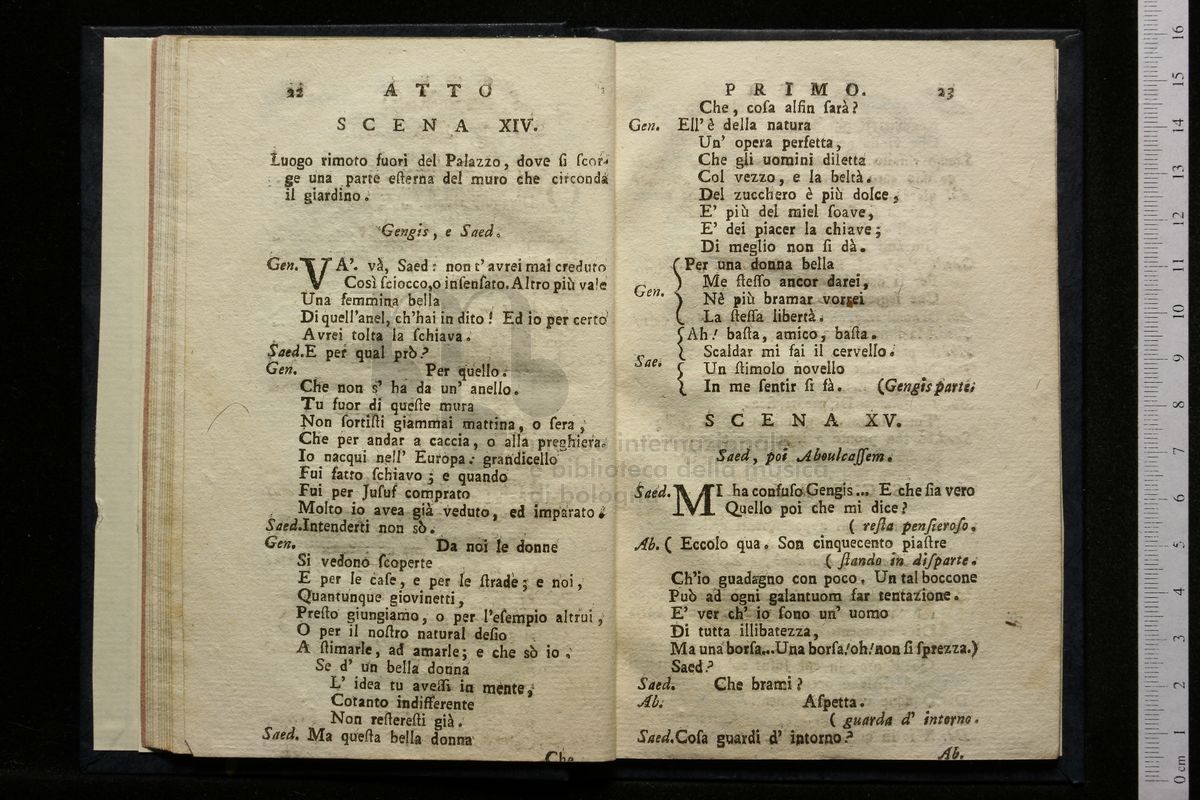 22 ATTO
SCENA XIV.
Luogo rimoto fuori del Palazzo, dove si scor-
ge una parte esterna del muro che circonda
il giardino.
Gengis, e Saed.
Gen. VA'. và, Saed: non t'avrei mai creduto
Così sciocco, o insensato. Altro più vale
Una femmina bella
Di quell'anel, ch'hai in dito! Ed io per certo
Avrei tolta la schiava.
Saed. E per qual prò?
Gen. Per quello.
Che non s' ha da un' anello.
Tu fuor di queste mura
Non sortisti giammai mattina, o sera,
Che per andar a caccia, o alla preghiera.
Io nacqui nell' Europa: grandicello
Fui fatto schiavo; e quando
Fui per Jusuf comprato
Molto io avea già veduto, ed imparato.
Saed. Intenderti non sò.
Gen. Da noi le donne
Si vedono scoperte
E per le case, e per le strade; e noi,
Quantunque giovinetti,
Presto giungiamo, o per l'esempio altrui,
O per il nostro natural desio
A stimarle, ad amarle; e che sò io.
Se d' un bella donna
L' idea tu avessi in mente,
Cotanto indifferente
Non resteresti già.
Saed. Ma questa bella donna
Che
PRIMO. 23
Che, cosa alfin sarà?
Gen. Ell' è della natura
Un' opera perfetta,
Che gli uomini diletta
Col vezzo, e la beltà.
Del zucchero è più dolce,
E' più del miel soave,
E' dei piacer la chiave;
Di meglio non si dà.
Per una donna bella
Me stesso ancor darei,
Gen. Nè più bramar vorrei
La stessa libertà.
Ah! basta, amico, basta.
Scaldar mi fai il cervello.
Sae. Un stimolo novello
In me sentir si fà. (Gengis parte.
SCENA XV.
Saed, poi Aboulcassem.
Saed. MI ha confuso Gengis... E che sia vero
Quello poi che mi dice?
( resta pensieroso.
Ab. ( Eccolo qua. Son cinquecento piastre
( stando in disparte.
Ch'io guadagno con poco. Un tal boccone
Può ad ogni galantuom far tentazione.
E' ver ch' io sono un' uomo
Di tutta illibatezza,
Ma una borsa... Una borsa! oh! non si sprezza.)
Saed?
Saed. Che brami?
Ab. Aspetta.
( guarda d' intorno.
Saed. Cosa guardi d' intorno?
Ab.
internazionale
e biblioteca della musica
di bologna
0 cm 1 2 3 4 5 6 7 8 9 10 11 12 13 14 15 16